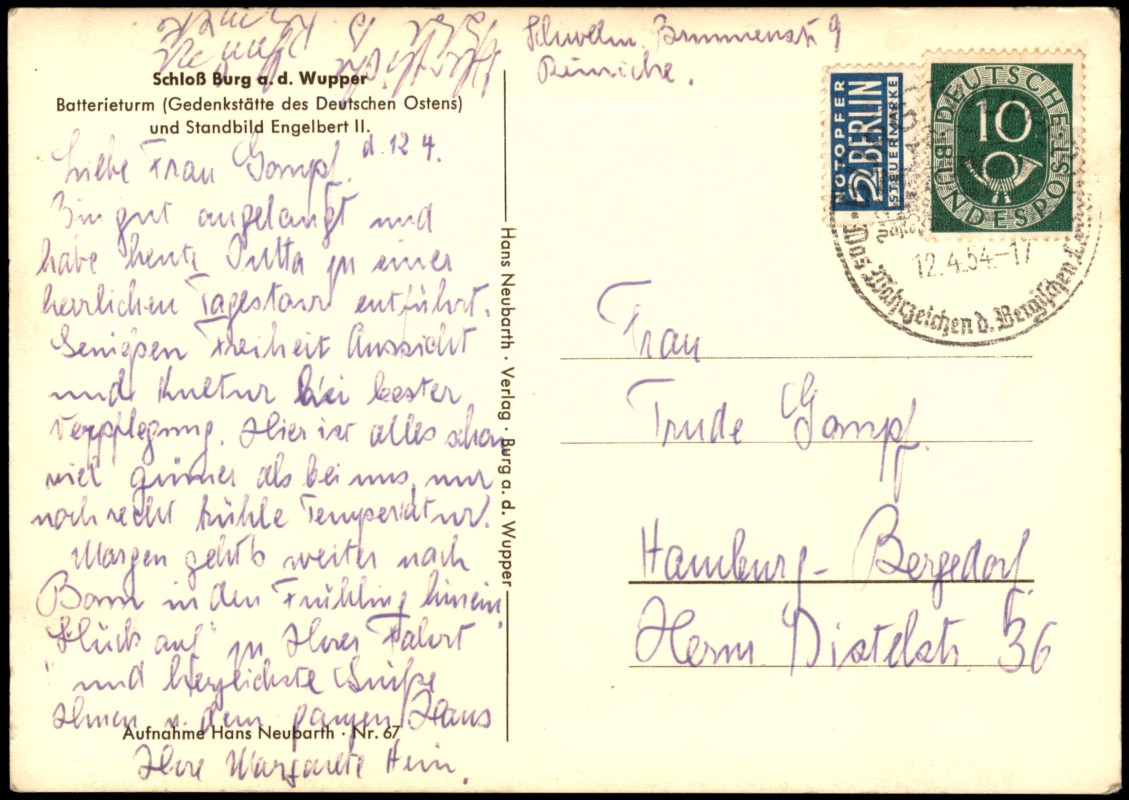 Schwelm. Brunnenstr. 9
Schloß Burg a. d. Wupper
Batterieturm (Gedenkstätte des Deutschen Ostens)
und Standbild Engelbert II.
d. 12 4.
Liebe Frau Gampf.
Bin gut angelangt und
habe heute Jutta zu einer
herrlichen Tagestour entführt.
Genießen Freiheit Aussicht
und Kultur bei bester
Verpflegung. Hier ist alles schon
viel grüner als bei uns, nur
noch recht kühle Temperatur.
Morgen gehts weiter nach
Bonn in den Frühling hinein
"Glück auf" zu Ihrer Fahrt
und herzlichste Grüße
Ihnen u. dem ganzen Haus
Aufnahme Hans Neubarth · Nr. 67
Ihre Margarete Hein.
Hans Neubarth · Verlag · Burg a. d. Wupper
NOTOPFER
2 BERLIN
STEUERMARKE
DEUTSCHE
BUNDESPOST
10
12.4.54.-17
Das Wahrzeichen d. Bergischen
Frau
Trude Gampf.
Hamburg-Bergedorf
Herm. Distelstr. 36